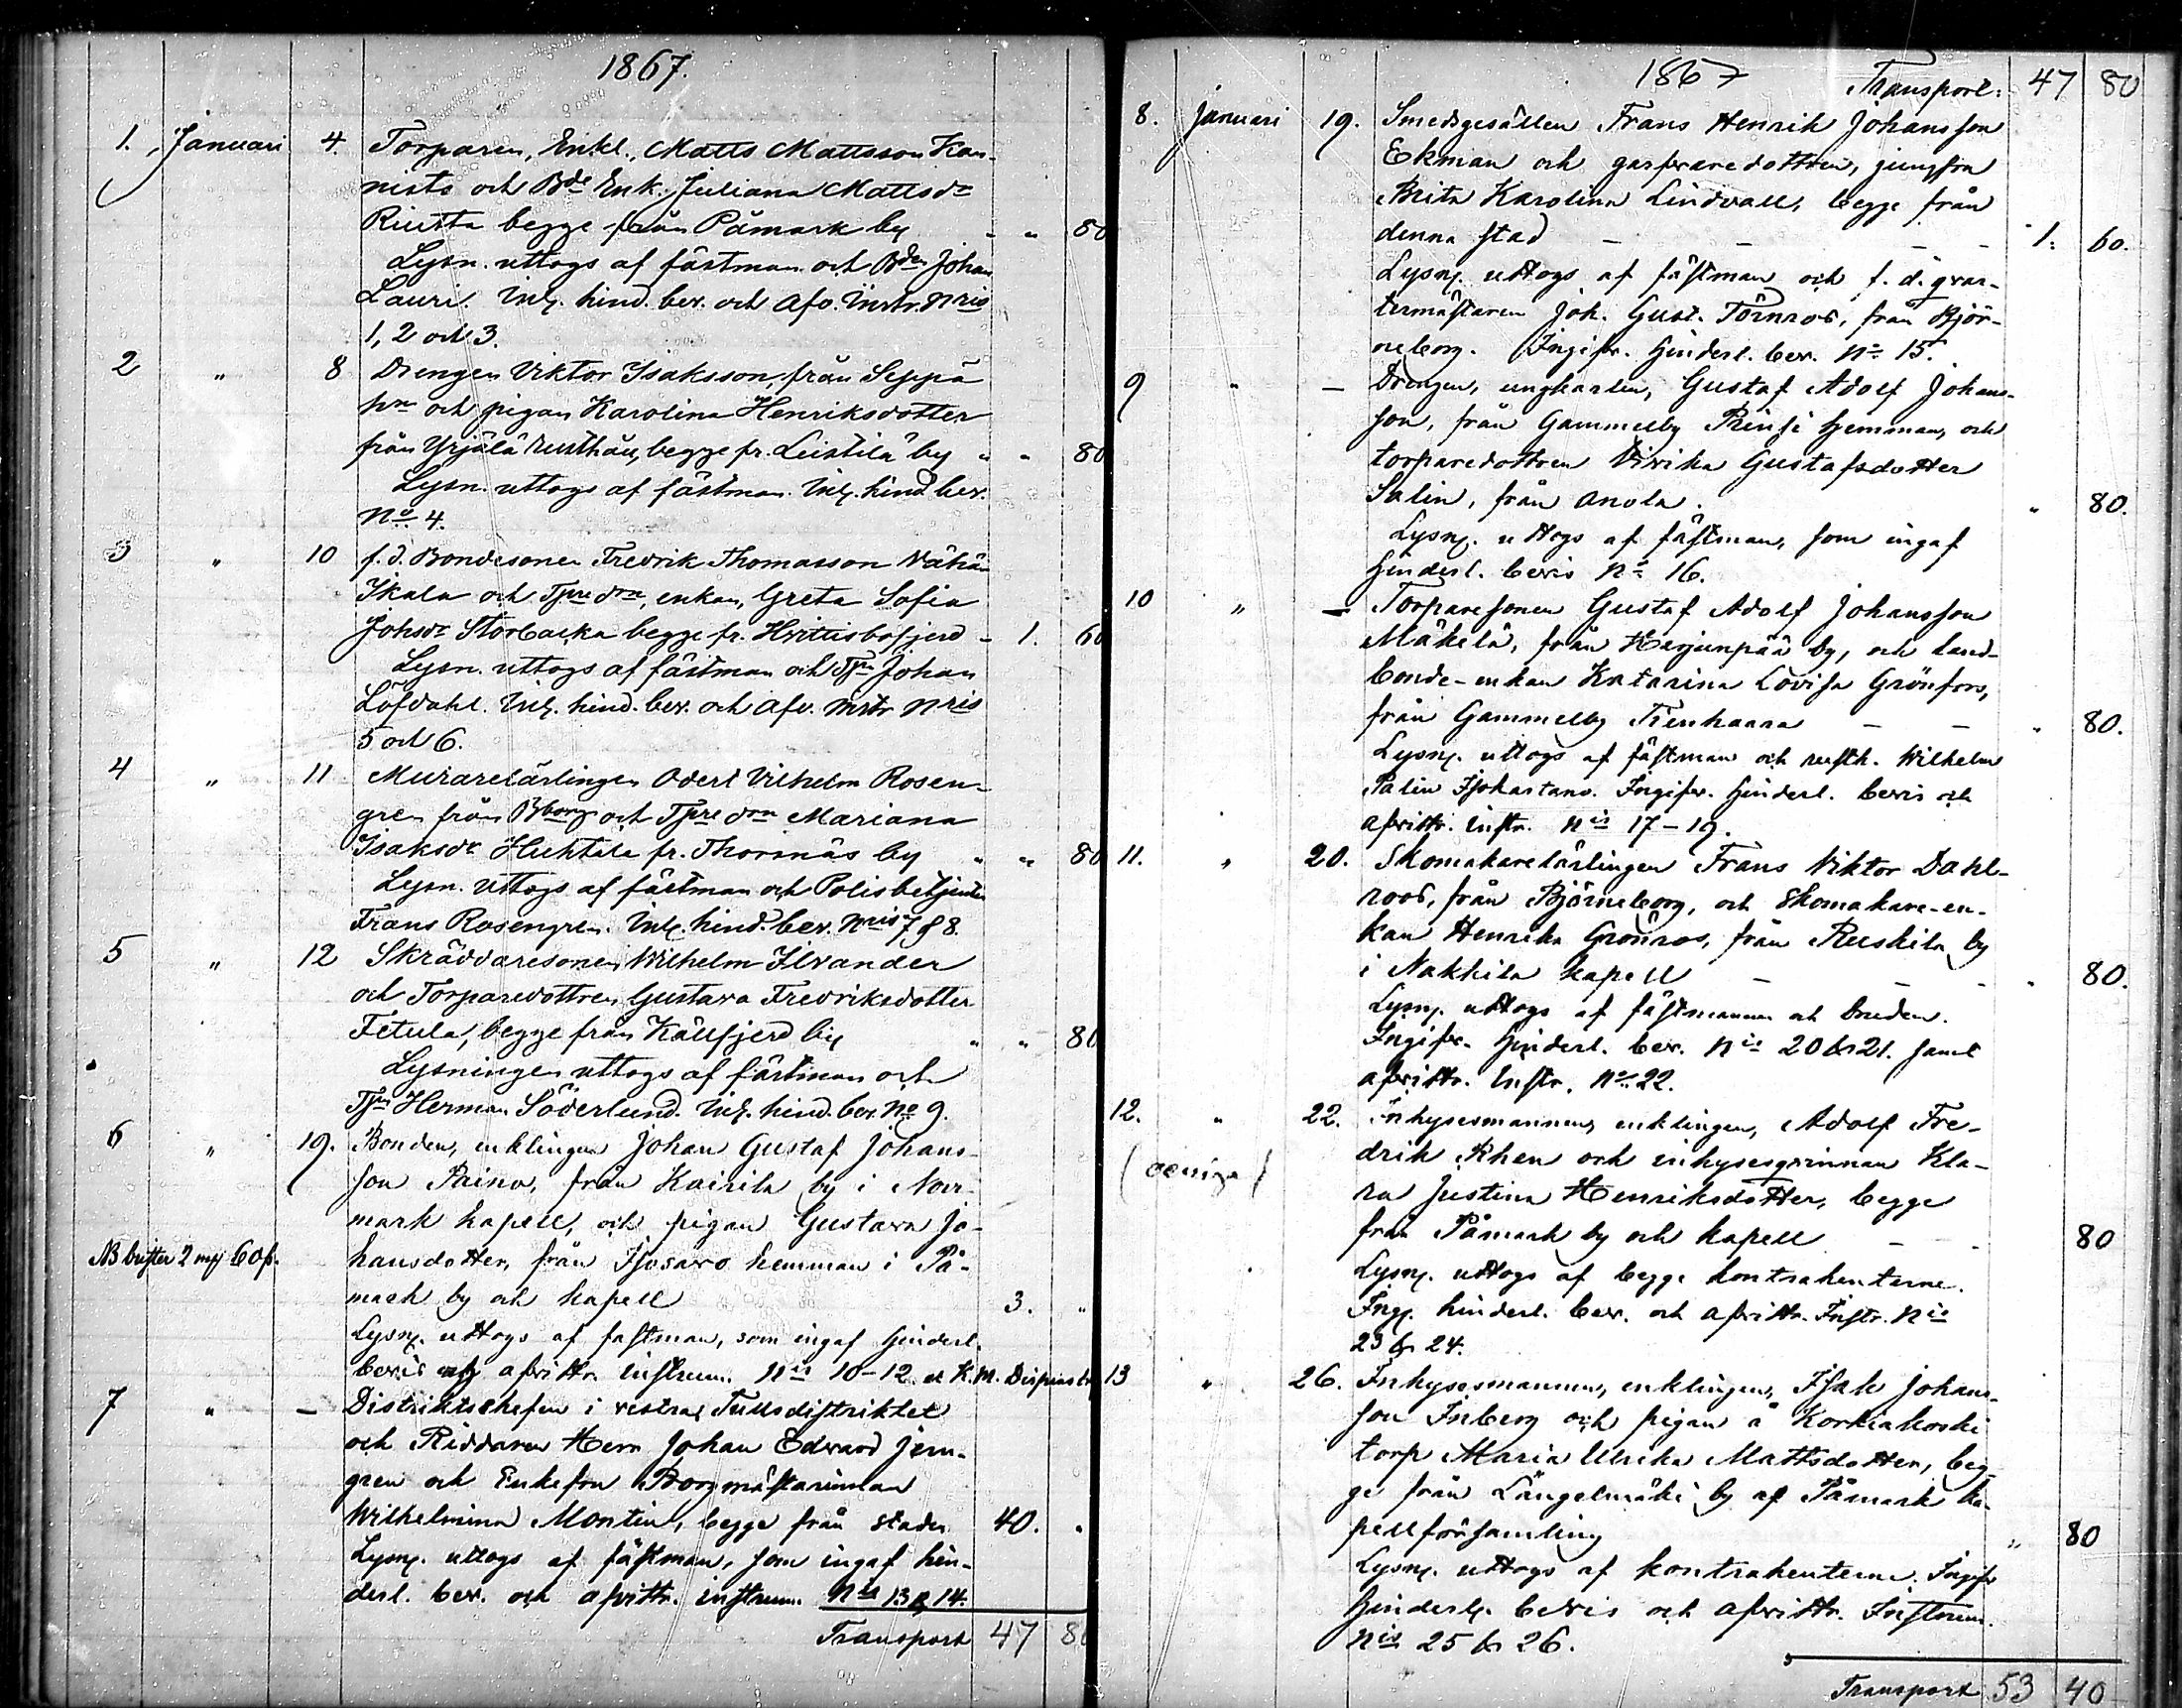 1867.
1. Januari 4. Torparen, Enkl., Matts Mattsson Kan-
nisto och Bde Enk. Juliana Mattsdr
Riutta begge från Påmark by " " 80
Lysn. uttogs af fästman och Bden Johan
Lauri. Inl. hind. bev. och Afv. Instr. Nris
1, 2 och 3.
2 " 8 Drengen Viktor Isaksson, från Seppä
hn och pigan Karolina Henriksdotter
från Yrjälä rusthåll, begge fr. Leistilä by " " 80
Lysn. uttogs af fästman. Inl. hind bev.
No 4.
3 " 10 f.d. Bondesonen Fredrik Thomasson Vähä
Ikala och Tpredrn, enkan, Greta Sofia
Johsdr Storbacka begge fr. Hvittisbofjerd - 1. 60
Lysn. uttogs af fästman och Johan
Löfdahl. Inl. hind. bev. och Afv. Instr Nris
5 och 6.
4 " 11 Murarelärlingen Odert Vilhelm Rosen-
gren från Bborg och Tpredrn Mariana
Isaksdr Huhtala fr. Thorsnäs by " " 80
Lysn. uttogs af fästman och Polisbetjenten
Frans Rosengren. Inl. hind. bev. Nris 7 & 8.
5 " 12 Skräddaresonen Wilhelm Ilvander
och Torparedottren Gustava Fredriksdotter
Fetula, begge från Källfjerd by " " 80
Lysningen uttogs af fästman och
Herman Söderlund. Inl. hind. bev. No 9.
6 " 19. Bonden, enklingen Johan Gustaf Johans-
son Paino, från Kairila by i Norr-
mark kapell, och pigan Gustava Jo-
NB brister 2 mk 60 p. hansdotter, från Isosavo hemman i På-
mark by och kapell 3. "
Lysn. uttogs af fastman, som ingaf hinderl.
bevis och afvittr. instrum. Nis 10-12 et K. M. Dispens br
7 " - Distriktschefen i vestra Tullsdistriktet
och Riddaren Herr Johan Edvard Jern-
gren och Enkefru Borgmästarinnan
Wilhelmina Montin, begge från staden 40. "
Lysn. uttogs af fästman, som ingaf hin-
derl. bev. och afvittr. instrum. Nis 13 & 14.
Transport 47 80
1867 Transport. 47 80
8. Januari 19. Smedsgesällen Frans Henrik Johansson
Ekman och garfvaredottren, jungfru
Brita Karolina Lindvall, begge från
denna stad - - - - 1. 60.
Lysn. uttogs af fästman och f. d. qvar-
termästaren Joh. Gust. Törnros, från Björ-
neborg. Ingifv. hinderl. bev. No 15.
9 " - Drengen, ungkarlen, Gustaf Adolf Johans-
son, från Gammelby Prinsi hemman, och
torparedottren Vivika Gustafsdotter
Salin, från Anola. " 80.
Lysn. uttogs af fästman, som ingaf
hinderl. bevis No 16.
10 " - Torparesonen Gustaf Adolf Johansson
Mäkelä, från Harjunpää by, och land-
bonde-enkan Katarina Lovisa Grönfors,
från Gammelby Tienhaara - - " 80.
Lysn. uttogs af fästman och rusth. Wilhelm
Palin Isokartano. Ingifv. hinderl. bevis och
afvittr. instr. Nis 17-19.
11. " 20. Skomakarelärlingen Frans Viktor Dahl-
roos, från Björneborg, och skomakare-en-
kan Henrika Grönros, från Ruskila by
i Nakkila kapell - - - " 80.
Lysn. uttogs af fästmannen och bruden.
Ingifv. hinderl. bev. Nis 20 & 21. samt
afvittr. instr. No 22.
12. " 22. Inhysesmannen, enklingen, Adolf Fre-
(oeniga) drik Rhen och inhysesqvinnan Kla-
ra Justina Henriksdotter, begge
från Påmark by och kapell - - 80
Lysn. uttogs af begge kontrahenterne.
Ing. hinderl. bev. och afvittr. Instr. Nis
23 & 24.
13 " 26. Inhysesmannen, enklingen, Isak Johans-
son Inberg och pigan å Korkiakoski
torp Maria Ulrika Mattsdotter, beg-
ge från Längelmäki by af Påmark ka-
pellförsamling " 80
Lysn. uttogs af kontrahenterne. Ingifv
hinderl. bevis och afvittr. Instrum.
Nis 25 & 26.
Transport 53 40